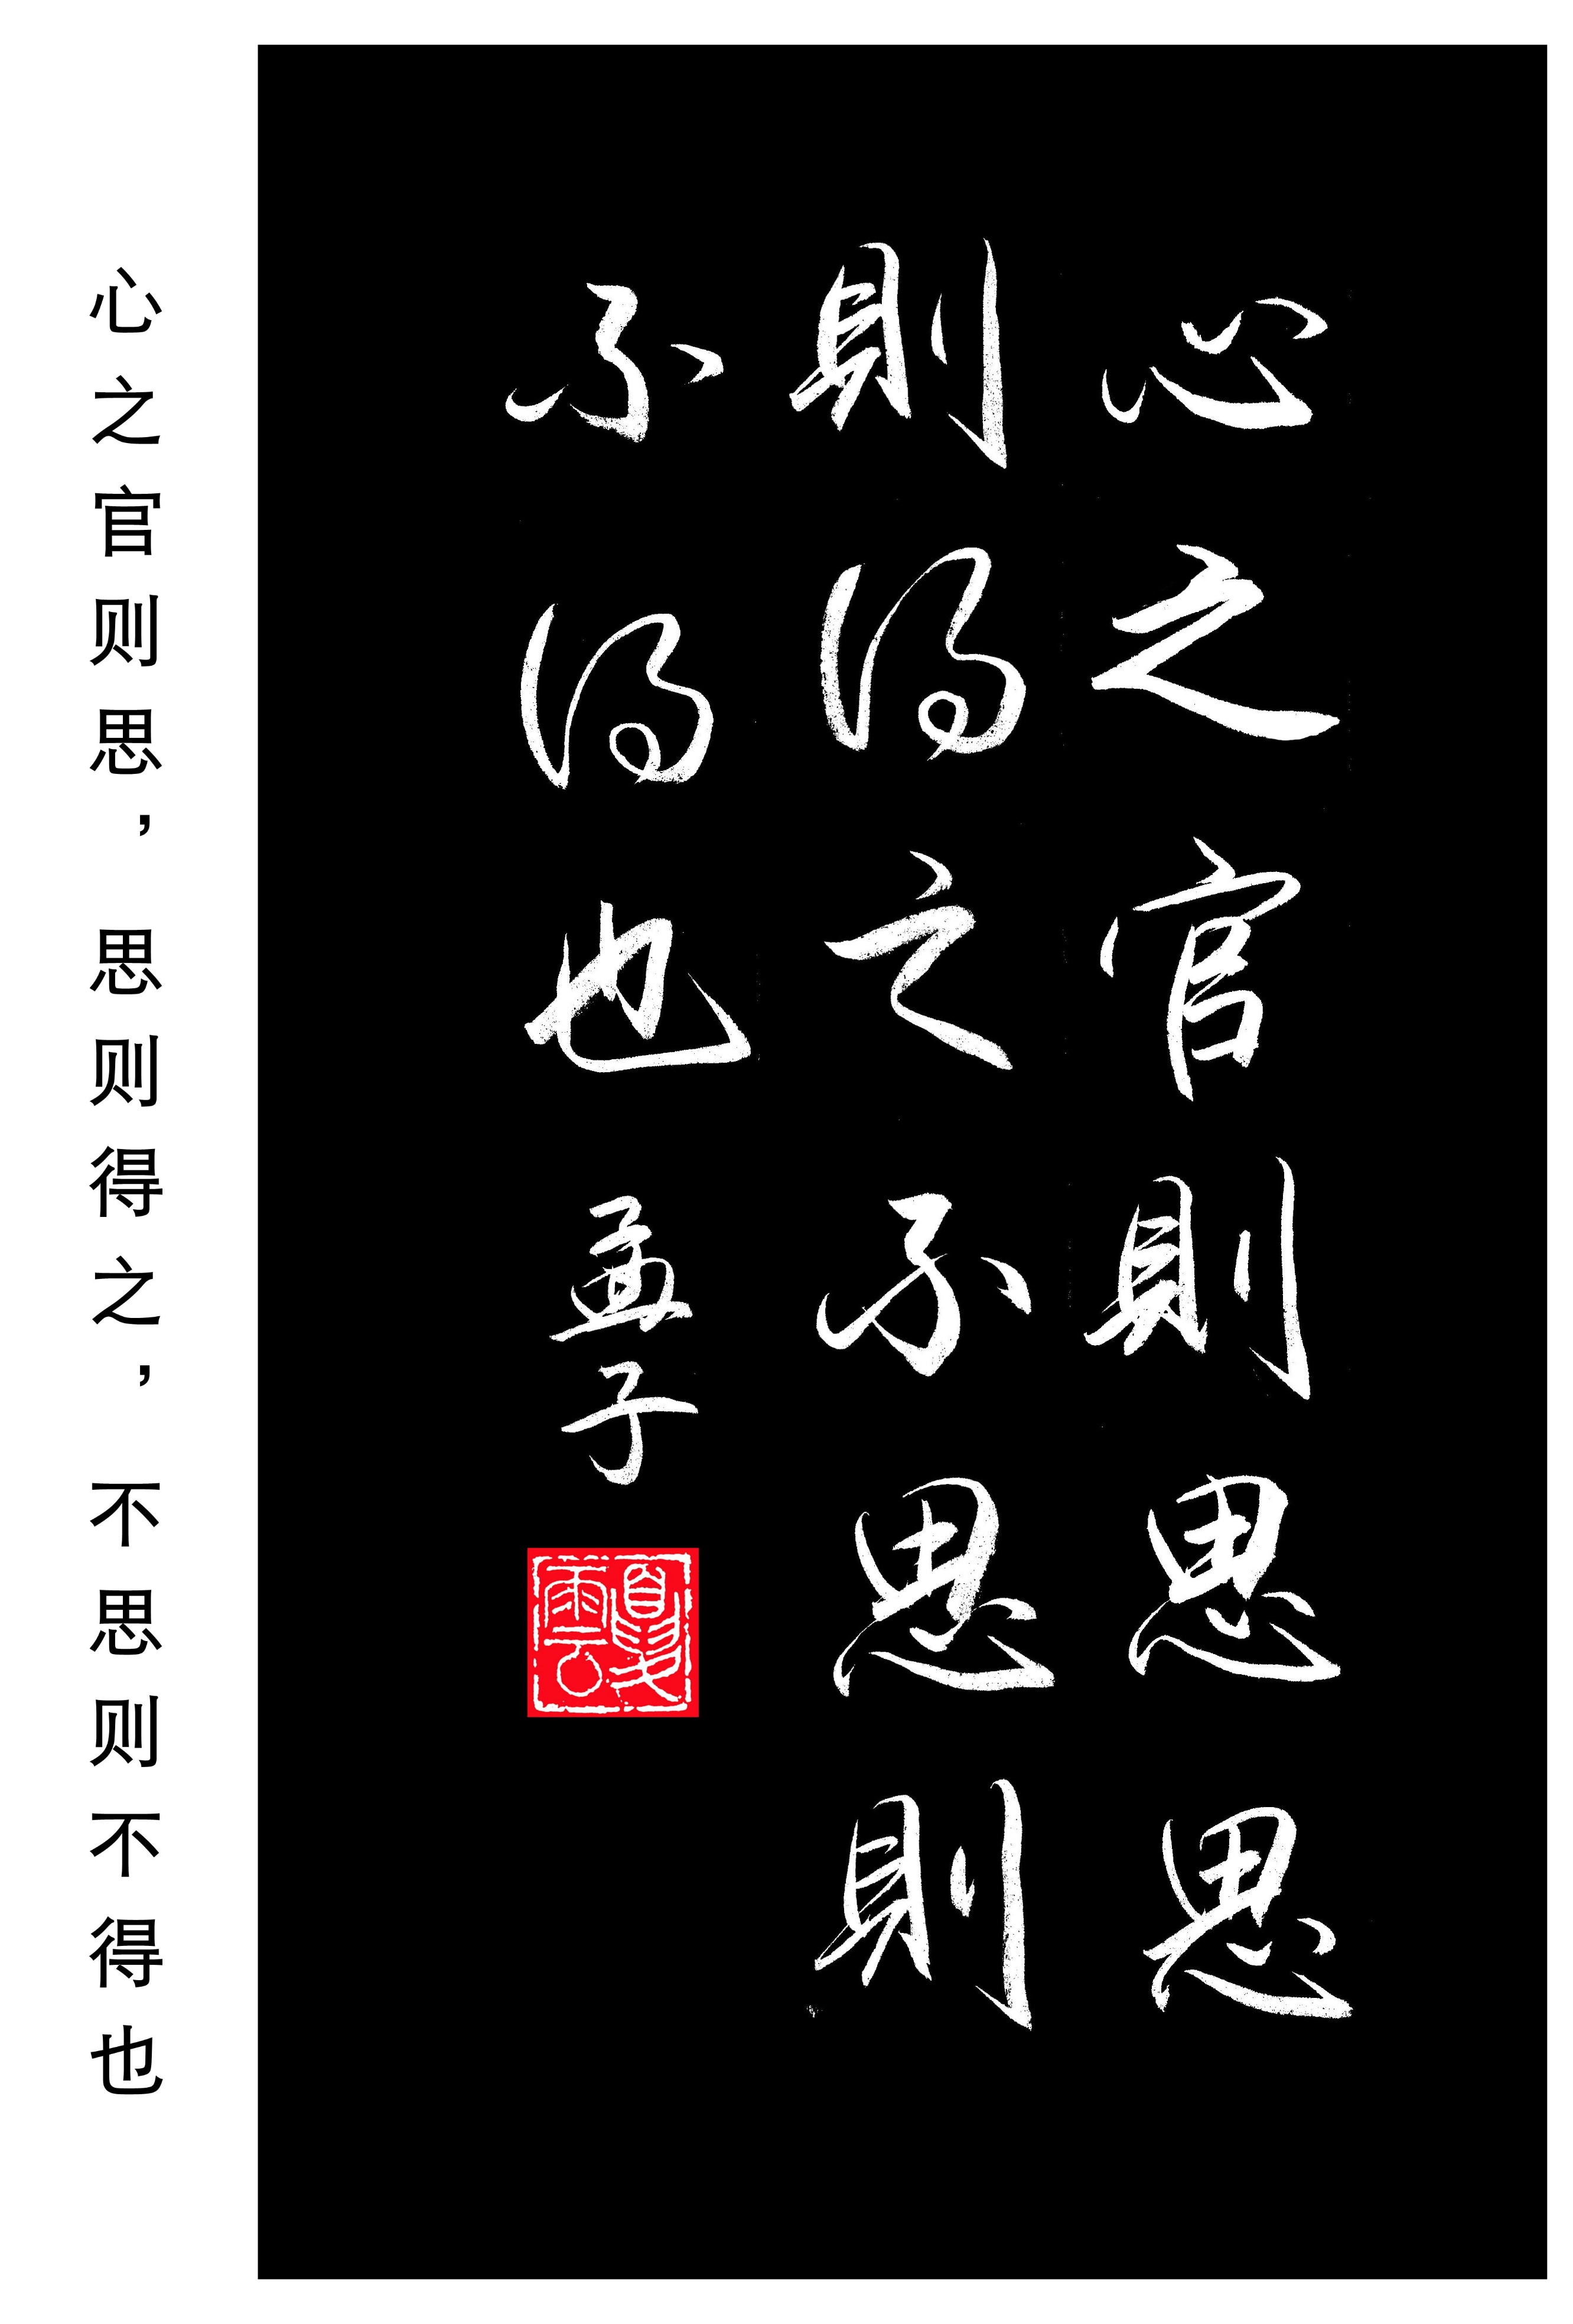 心之官則思思
則得之不思則
不得也孟子
夏雲
心之官则思，思则得之，不思则不得也